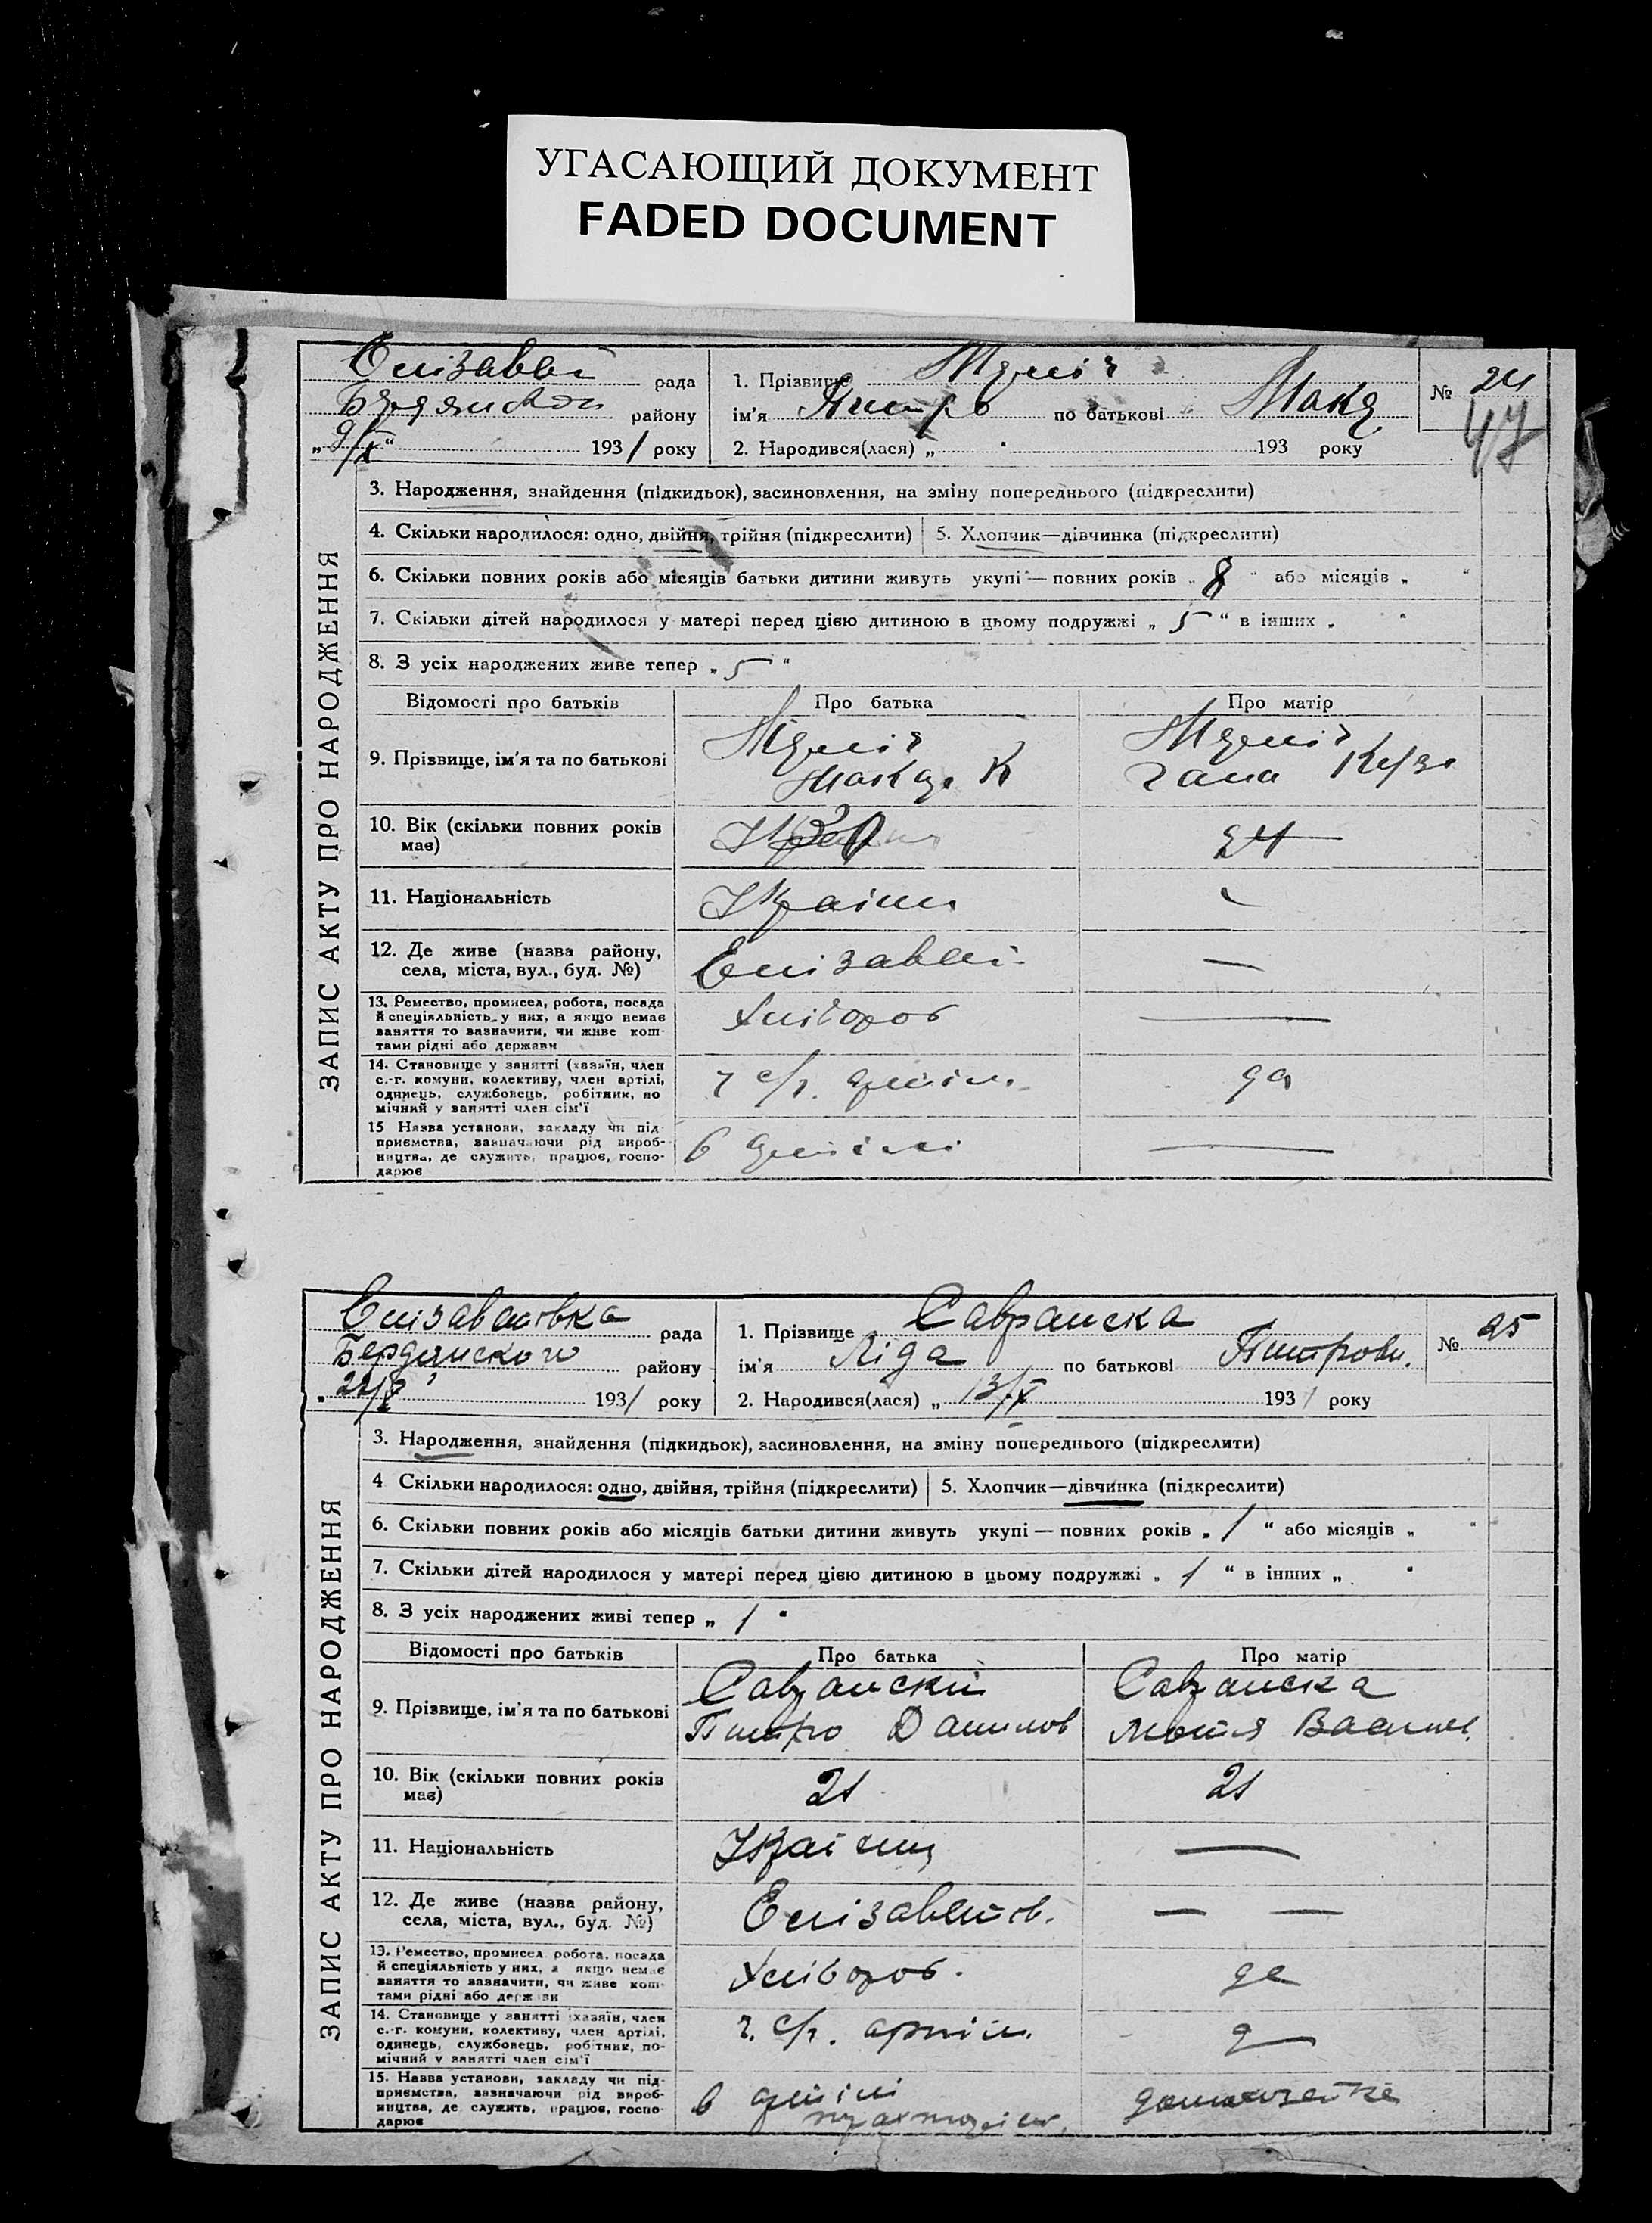 УГАСАЮЩИЙ ДОКУМЕНТ
FADED DOCUMENT
рада
району
„9/X“ 1931 року
1. Прізвище
ім'я по батькові
2. Народився(лася) „ 193 року
№ 24
47
ЗАПИС АКТУ ПРО НАРОДЖЕННЯ
3. Народження, знайдення (підкидьок), засиновлення, на зміну попереднього (підкреслити)
4. Скільки народилося: одно, двійня, трійня (підкреслити)
5. Хлопчик—дівчинка (підкреслити)
6. Скільки повних років або місяців батьки дитини живуть укупі — повних років „ 8 “ або місяців „ “
7. Скільки дітей народилося у матері перед цією дитиною в цьому подружжі „ 5 “ в інших „ “
8. З усіх народжених живе тепер „ 5 “
Відомості про батьків
Про батька
Про матір
9. Прізвище, ім'я та по батькові
10. Вік (скільки повних років
має)
24
11. Національність
Україн
12. Де живе (назва району,
села, міста, вул., буд. №)
—
13. Ремество, промисел, робота, посада
й спеціяльність у них, а якщо немає
заняття то зазначити, чи живе кош-
тами рідні або держави
Хлібороб
—
14. Становище у занятті (хазяїн, член
с.-г. комуни, колективу, член артілі,
одинець, службовець, робітник, по
мічний у занятті член сім'ї
ч с/г.
15 Назва установи, закладу чи під-
приємства, зазначаючи рід вироб-
ництва, де служить, працює, госпо-
дарює
в
—
Єлізаветівка рада
Бердянского району
22/X 1931 року
1. Прізвище Савранска
ім'я Ліда по батькові Питрови.
2. Народився(лася) „ 13/X 1931 року
№ 25
ЗАПИС АКТУ ПРО НАРОДЖЕННЯ
3. Народження, знайдення (підкидьок), засиновлення, на зміну попереднього (підкреслити)
4 Скільки народилося: одно, двійня, трійня (підкреслити)
5. Хлопчик—дівчинка (підкреслити)
6. Скільки повних років або місяців батьки дитини живуть укупі — повних років „ 1 “ або місяців „ “
7. Скільки дітей народилося у матері перед цією дитиною в цьому подружжі „ 1 “ в інших „ “
8. З усіх народжених живі тепер „ 1 “
Відомості про батьків
Про батька
Про матір
9. Прізвище, ім'я та по батькові
Савранский
Питро Данилов
Савранска
Василі
10. Вік (скільки повних років
має)
21
21
11. Національність
—
12. Де живе (назва району,
села, міста, вул., буд. №)
Єлізаветів.
— —
13. Ремество, промисел робота, посада
й спеціяльність у них, а якщо немає
заняття то зазначити, чи живе кош-
тами рідні або держави
Хлібороб.
14. Становище у занятті (хазяїн, член
с.-г. комуни, колективу, член артілі,
одинець, службовець, робітник, по-
мічний у занятті член сім'ї
ч. с/г. артіли.
15. Назва установи, закладу чи під-
приємства, зазначаючи рід вироб-
ництва, де служить, працює, госпо-
дарює
в